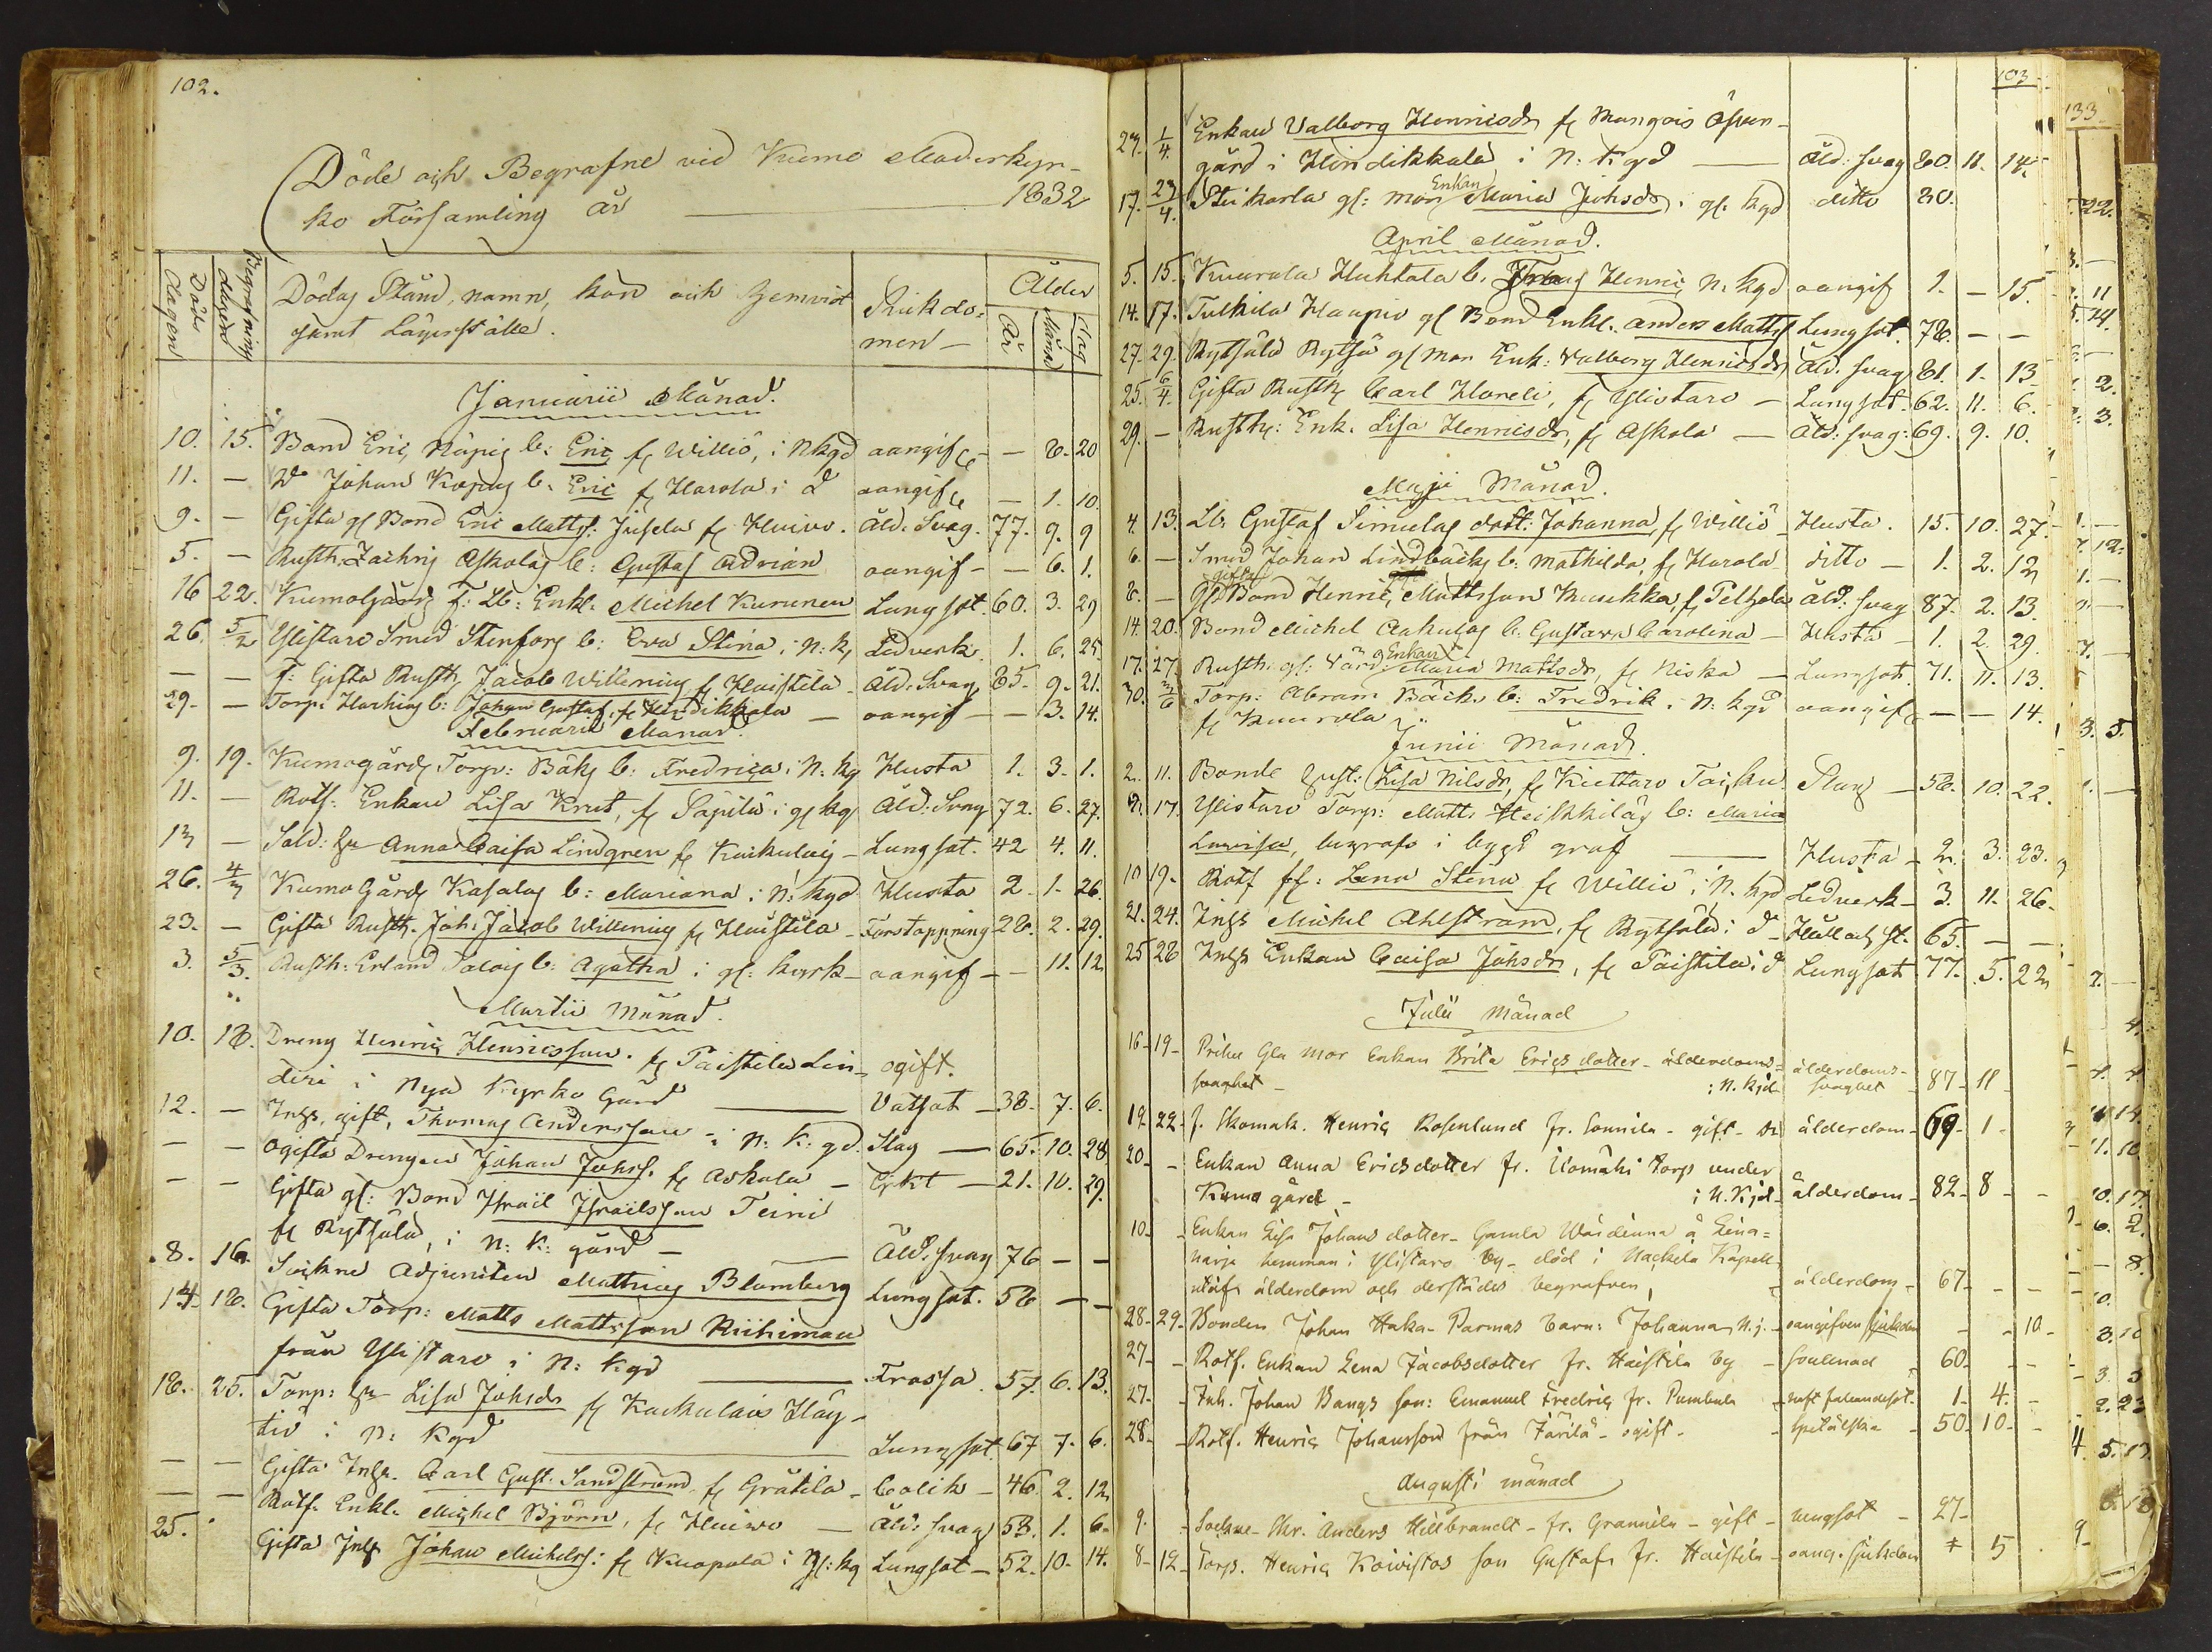 102.
Döde och Begrafne vid Kumo Moderkyr-
ko Församling år 1832
Döde Dagen
Begrafnings dagen
Dödas Stånd, namn, kön och hemvist
samt Lägerställe.
Sjukdo-
men
Ålder
År Månad Dag
Januarii Månad.
10. 15. Bond Eric Näpis b: Eric fr Williö, i Nkgd oangif - 8. 20
11. - Do Johan b. Eric fr Harola i d oangif - 1. 10.
9. - Gifta gl Bond Eric Matts: Jusela fr Huivo. Åld. Svag. 77. 9. 9
5. - Rusth. Zachris Askolas b: Gustaf Adrian oangif - - 6. 1.
16 22. Kumogårds F. Lb: Enkl: Michel Kurunen Lungsot. 60. 3. 29
26. 5/2 Ylistaro Smed Stenfors b: Eva Stina i N: k. Ledverk. 1. 6. 25.
- - F: Gifta Rusth. Jacob Willenius fr Haistila - Åld. Svag. 85. 9. 21.
29. - Torp: b: Johan Gustaf, fr Hindikkala - oangif - - 3. 14.
Februarii Månad.
9. 19. Kumogårds Torp: Bäks b: Fredrica i N: kg Husta 1. 3. 1.
11. - Rotf: Enkan Lisa Krut, fr Säpilä i gl kg Åld: Svag 72. 6. 27.
13 - Sold: hu Anna Caisa Lindgren fr Kaukulais - Lungsot. 42 4. 11.
26. 4/3 Kumo Gårds Kasalas b: Mariana i N: kgd Husta 2. 1. 26.
23. - Gifta Rusth. Joh: Jacob Willenius fr Haistila - Förstoppning 28. 2. 29.
3. 5/3. Rusth: Erland b: Agatha i gl: kyrk - oangif - - 11. 12
Martii Månad.
10. 18. Dreng Henric Henricsson. fr Paistila Lin- ogift.
deri i Nya Kyrko Gård Vatsot - 38. 7. 6.
12. - Inhs. gift, Thomas Andersson i N: K: gd. Slag - 65. 10. 28
- - Ogifta Drengen Johan Johss. fr Askola - - 21. 10. 29.
- - Gifta gl: Bond Israil Israilsson Teini
fr Ryttsälä, i N: K: gård - Åld. svag 76 - -
8. 16. Sockne Adjuncten Mathias Blomberg Lungsot. 58 - -
14. 18. Gifta Torp: Matts Mattsson Riihimau
från Ylistaro i N: Kgd Frossa. 57. 6. 13.
18. 25. Torp: hu Lisa Johsdr fr Kaukulais Häy-
tiö i N: Kgd Lungsot. 67 7. 6.
- - Gifta Inhs. Carl Gust. Sandström fr Gråtila - Colik - 46. 2. 12
- - Rotf. Enkl. Michel Björn, fr Huivo - Åld: svag 53. 1. 6.
25. Gifta Inhs Johan Michelss: fr Kuopola i gl: kg Lungsot - 52. 10. 14.
103
24. 1/4. Enkan Valborg Henricsdr fr Mangois Öfver-
gård i Hindikkala i N: kgd Åld: svag 80. 11. 14.
17. 23/4. Steikarla gl: mor Enkan Maria Johsdr i gl. kgd ditto 80.
April Månad.
5. 15. Kuurola Huhtala b. Henric N. kgd oangif 1. - 15.
14. 17. Tulkila Haapio gl Bond Enkl. Anders Mattss Lungsot. 78. - -
27. 29. Ryttsälä Ryttsä gl mor Enk: Valborg Henricsdr Åld. svag 81. 1. 13
25. 6/4. Gifta Rusth. Carl Horeli, fr Ylistaro - Lungsot. 62. 11. 6.
29. - Rusth: Enk. Lisa Henricsdr, fr Askola - Åld: svag. 69. 9. 10.
Maji Månad.
4. 13. Lb. Gustaf Simulas dott: Johanna fr Williö - Husta. 15. 10. 27.
6. - Smed Johan Lindbäcks b. Mathilda, fr Harola - ditto - 1. 2. 12
8. - gifta gl Bond Henric Mattsson Kuukka, fr Peltola Åld: svag 87. 2. 13.
14. 20. Bond Michel Aakulas b. Gustava Carolina - Husta - 1. 2. 29.
17. 27. Rusth. gl: Värd: Enkan Maria Mattsdr, fr Niska - Lungsot. 71. 11. 13.
30. 3/6 Torp: Abram Bäcks b: Fredrik i N: kgd oangif - - 14.
fr Kuurola
Junii Månad.
2. 11. Bonde hust: Lisa Nilsdr, fr Kiettaro Slag - 58. 10. 22.
9. 17. Ylistaro Torp: Matts Heikkiläs b: Maria
Lovisa, begrafs i bygd graf Husta - 2. 3. 23.
10 19. Rotf : Lena Stina fr Williö i N. kgd Ledverk - 3. 11. 26.
21. 24. Inhs Michel Ahlstram, fr Ryttsälä i d - Håll och st. 65. - -
25 28 Inhs Enkan Caisa Johsdr, fr Paistila i d Lungsot 77. 5. 22
Julii månad
16 - 19 - Gla mor Enkan Brita Erics dotter - ålderdoms- ålderdoms-
svaghet - i N. Kjd. svaghet - 87 - 11
19. 22. f. Skomak. Henric Rosenlund fr. Sonnila - gift - ålderdom - 69 - 1 -
20 - - Enkan Anna Ericsdotter fr. Ilomäki torp under
Kumo gård - i N. Kjd - ålderdom - 82 - 8 - -
10 - - Enkan Lisa Johans dotter - Gamla Wärdinna å Leina-
narja hemman i Ylistaro by - död i Nackila Kapell
utaf ålderdom och derstädes begrafven ålderdom - 67 - - -
28 - 29 - Bonden Johan Haka-Parmas barn: Johanna N. j. - oangifven sjukdom - - 10 -
27 - - Rotf. Enkan Lena Jacobsdotter fr. Haistila by - svullnad - 60 - -
27 - - Inh. Johan Bangs son: Emanuel Fredric fr. Pumbula - fallandesot - 1 - 4. -
28 - - Rotf. Henric Johansson från Järilä - ogift - spetälska - 50 - 10 -
Augusti månad
9. - Sockne-Skr. Anders Hillbrandt - fr. Grannila - gift - lungsot - 27 -
8 - 12 - Torp. Henric Koivistos son Gustaf fr. Haistila - oang. sjukdom - 5
133